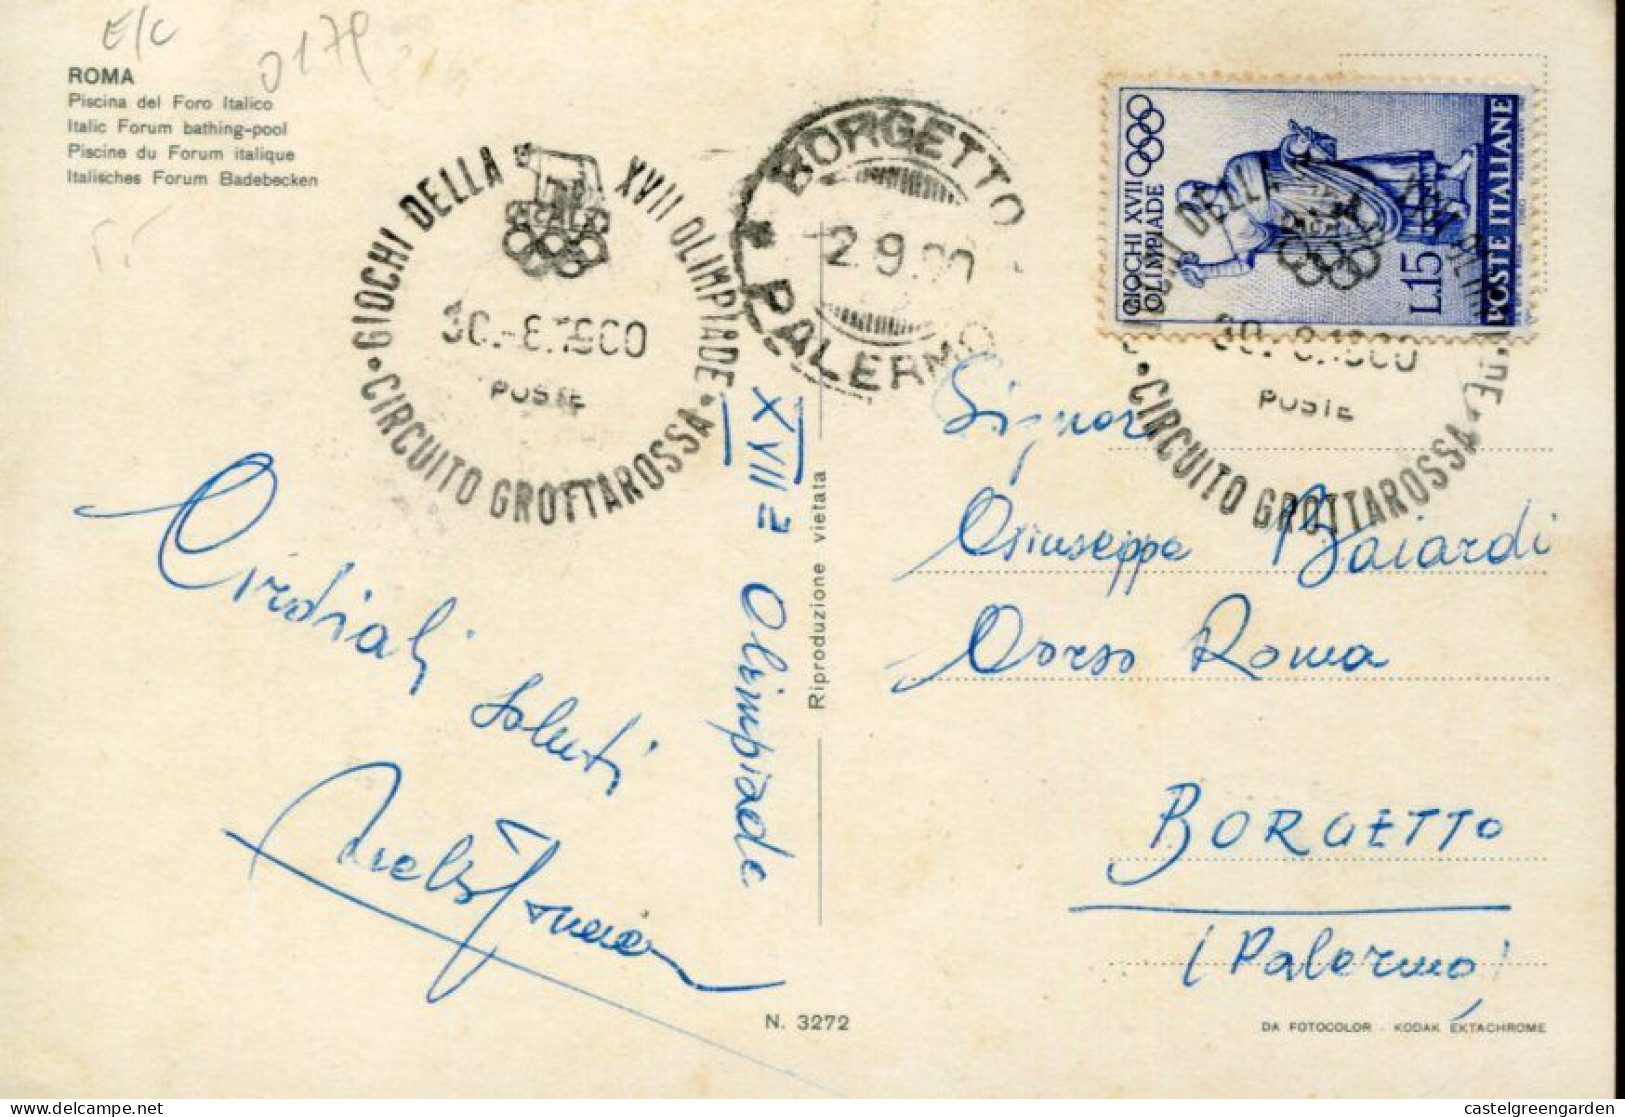 E/C
0179
ROMA
Piscina del Foro Italico
Italic Forum bathing-pool
Piscine du Forum italique
Italisches Forum Badebecken
GIOCHI DELLA XVII OLIMPIADE
30.-8.1960
POSTE
CIRCUITO GROTTAROSSA
BORGETTO
2.9.60
PALERMO
GIOCHI XVII
OLIMPIADE
L.15
POSTE ITALIANE
GIOCHI DELLA XVII OLIMPIADE
30.-8.1960
POSTE
CIRCUITO GROTTAROSSA
Cordiali saluti
XVII a Olimpiade
Riproduzione vietata
Signor
Giuseppe Baiardi
Corso Roma
BORGETTO
(Palermo)
N. 3272
DA FOTOCOLOR - KODAK EKTACHROME
castelgreengarden